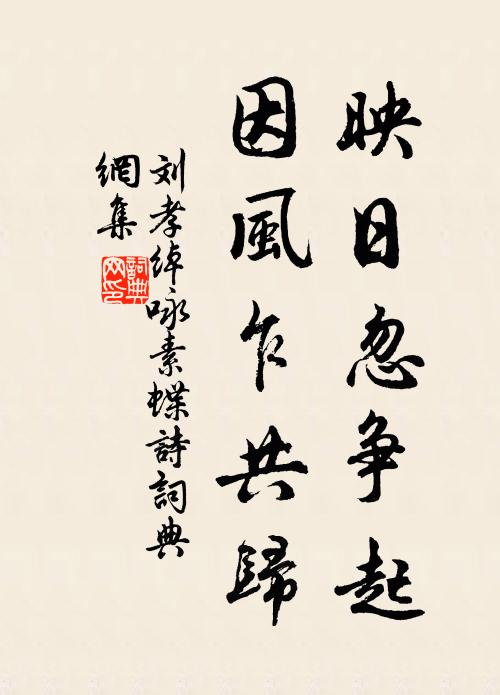 映日忽争起
因風乍共歸
刘孝绰咏素蝶詩詞典
網集
詞典
网印